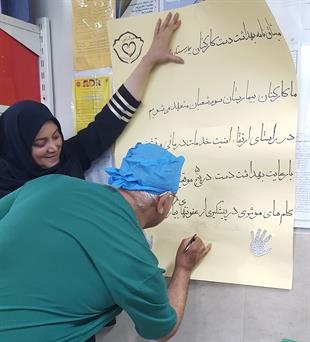 میثاق نامه بهداشت دست کارکنان بیمارستان
ما کارکنان بیمارستان سوم شعبان متعهد می شویم
در راستای ارتقاء امنیت خدمات درمانی و
با رعایت بهداشت دست در پنج موقعیت
گام های موثری در پیشگیری از عفونتهای